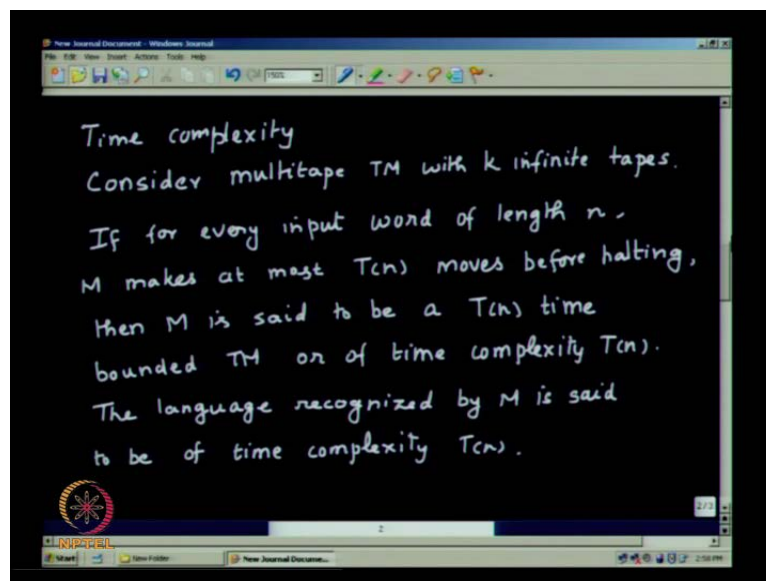 New Journal Document - Windows Journal
File Edit View Insert Actions Tools Help
150%
Time complexity
Consider multitape TM with k infinite tapes.
If for every input word of length n,
M makes at most T(n) moves before halting,
then M is said to be a T(n) time
bounded TM or of time complexity T(n).
The language recognized by M is said
to be of time complexity T(n).
2/3
2
NPTEL
Start New Folder New Journal Docume... 2:50 PM